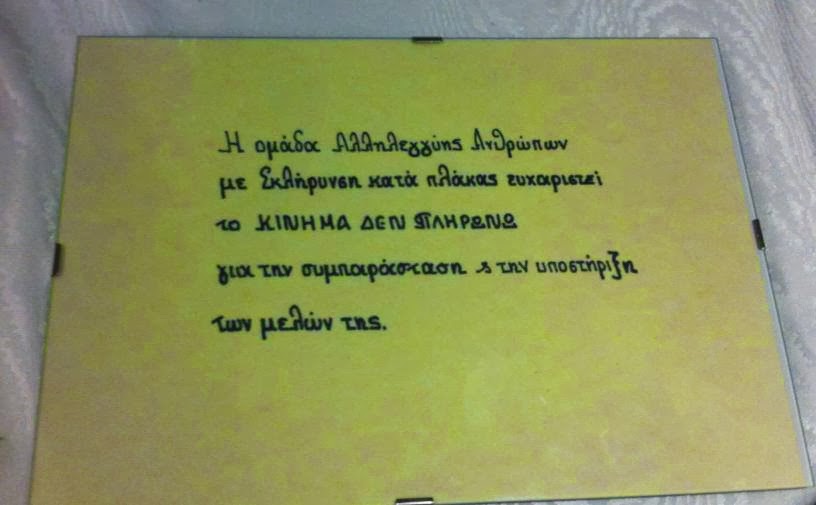 Η ομάδα Αλληλεγγύης Ανθρώπων
με Σκλήρυνση κατά πλάκας ευχαριστεί
το ΚΙΝΗΜΑ ΔΕΝ ΠΛΗΡΩΝΩ
για την συμπαράσταση & την υποστήριξη
των μελών της.